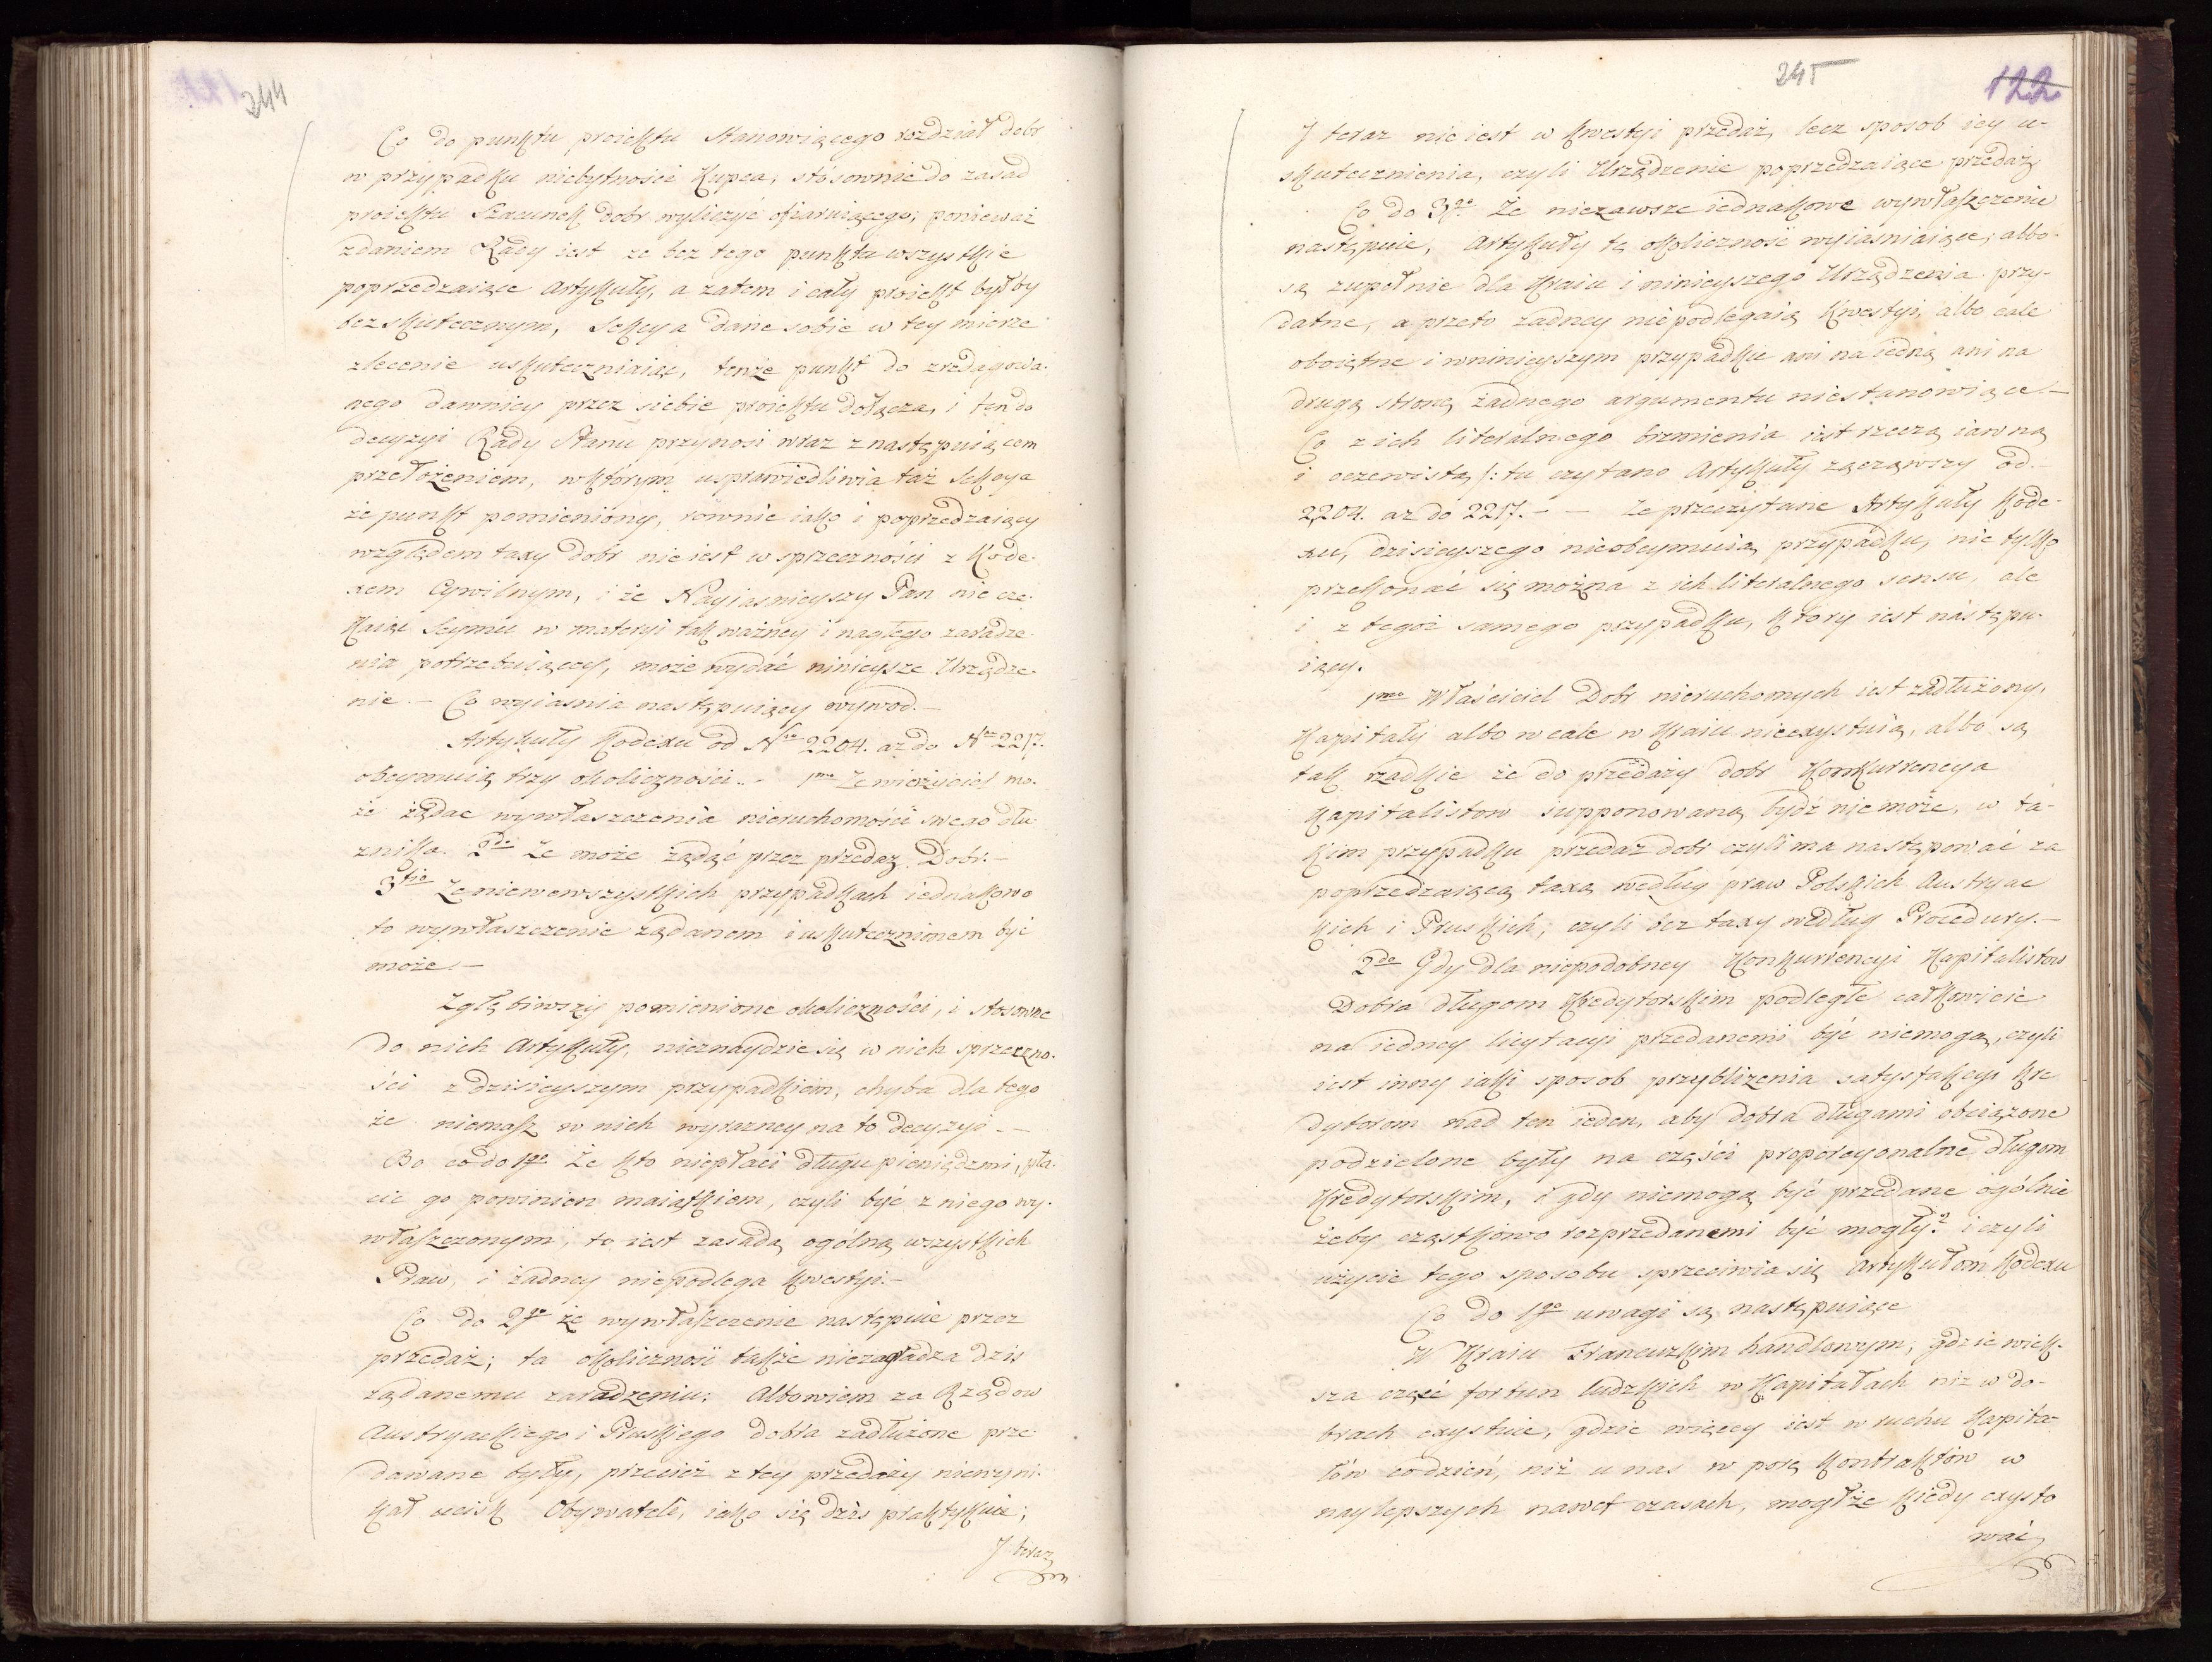 244
Co do punktu proiektu stanowiącego rozdział dobr
w przypadku niebytności Kupca, stósownie do zasad
proiektu Szacunek dobr wyliczyć ofiaruiącego; ponieważ
zdaniem Rady iest ze bez tego punktu wszystkie
poprzedzaiące Artykuły, a zatem i cały proiekt byłby
bezskutecznym, Sekcya dane sobie w tey mierze
zlecenie uskuteczniaiąc, tenże punkt do zredagowa-
nego dawniey przez siebie proiektu dołącza, i ten do
decyzyi Rady Stanu przynosi wraz z następuiącem
przełożeniem, wktórym usprawiedliwia taż Sekcya
że punkt pomieniony, rownie iako i poprzedzaiący
względem taxy dobr nie iest w sprzeczności z Kode-
xem Cywilnym, i że Nayiasnieyszy Pan nie cze-
kaiąc Seymu w materyi tak ważney i nagłego zaradze-
nia potrzebuiącey, może wydać ninieysze Urządze-
nie. – Co wyiasnia następuiący wywod. –
Artykuły Kodexu od Nro 2204. az do Nro 2217.
obeymuią trzy okoliczności. – 1mo Ze wierzyciel mo-
że żądac wywłaszczenia nieruchomości swego dłu-
znika. 2do Ze może żądać przez przedaz Dobr. –
3tio Ze niewewszystkich przypadkach iednakowo
to wywłaszczenie ządanem i uskutecznionem być
może. –
Zgłębiwszy pomienione okoliczności, i stosowne
do nich Artykuły, nieznaydzie się w nich sprzeczno-
ści z dzisieyszym przypadkiem, chyba dla tego
że niemasz w nich wyrazney na to decyzyi. –
Bo co do 1go Że kto niepłaci długu pieniądzmi, pła-
cic go powinien maiątkiem, czyli być z niego wy-
właszczonym, to iest zasadą ogólną wszystkich
Praw, i żadney niepodlega kwestyi. –
Co do 2go że wywłaszczenie następuie przez
przedaż; ta okoliczność także niezagładza dziś
ządanemu zaradzeniu; Albowiem za Rządow
Austryackiego i Pruskiego dobra zadłużone prze-
dawane były, przecież z tey przedaży niewyni-
kał ucisk Obywateli, iako się dziś praktykuie;
J teraz
245
122
J teraz nie iest w kwestyi przedaż, lecz sposob iey u-
skutecznienia, czyli Urządzenie poprzedzaiące przedaż.
Co do 3go Że niezawsze iednakowe wywłaszczenie
następuie, Artykuły tę okoliczność wyiasniaiące, albo
są zupełnie dla Kraiu i ninieyszego Urządzenia przy-
datne, a przeto żadney niepodlegaią kwestyi, albo cale
oboiętne i wninieyszym przypadku ani na iedną ani na
drugą stronę żadnego argumentu niestanowiące. –
Co z ich literalnego brzmienia iest rzeczą iawną
i oczewistą /: tu czytano Artykuły zacząwszy od. –
2204. az do 2217. – – Ze przeczytane Artykuły Kode-
xu, dzisieyszego nieobeymuią przypadku, nie tylko
przekonać się można z ich literalnego sensu, ale
i z tegoż samego przypadku, ktory iest nástępu-
iący.
1mo Właściciel Dobr nieruchomych iest zadłużony,
Kapitały albo wcale w Kraiu nieexystuią, albo są
tak rzadkie że do przedaży dobr Konkurrencya
Kapitalistow supponowaną bydź niemoże, w ta-
kim przypadku przedaz dobr czyli ma następować za
poprzedzaiącą taxą według praw Polskich Austryac
kich i Pruskich, czyli bez taxy według Procedury. –
2do Gdy dla niepodobney Konkurrencyi Kapitalistow
Dobra długom Kredytorskim podległe całkowicie
na iedney licytacyi przedanemi być niemogą, czyli
iest inny iaki sposob przyblizenia satysfakcyi Kre
dytorom nad ten ieden, aby dobra długami obciążone
podzielone były na części proporcyonalne długom
Kredytorskim, i gdy niemogą być przedane ogólnie
żeby cząstkowo rozprzedanemi być mogły? i czyli
użycie tego sposobu sprzeciwia się Artykułom Kodexu
Co do 1go uwagi są następuiące
W Kraiu Francuzkim handlowym, gdzie więk-
sza część fortun ludzkich w Kapitałach niz w do-
brach exystuie, gdzie więcey iest w ruchu Kapita-
łów codzień, niż u nas w porę Kontraktów w
naylepszych nawet czasach, mogłże kiedy exysto
wać